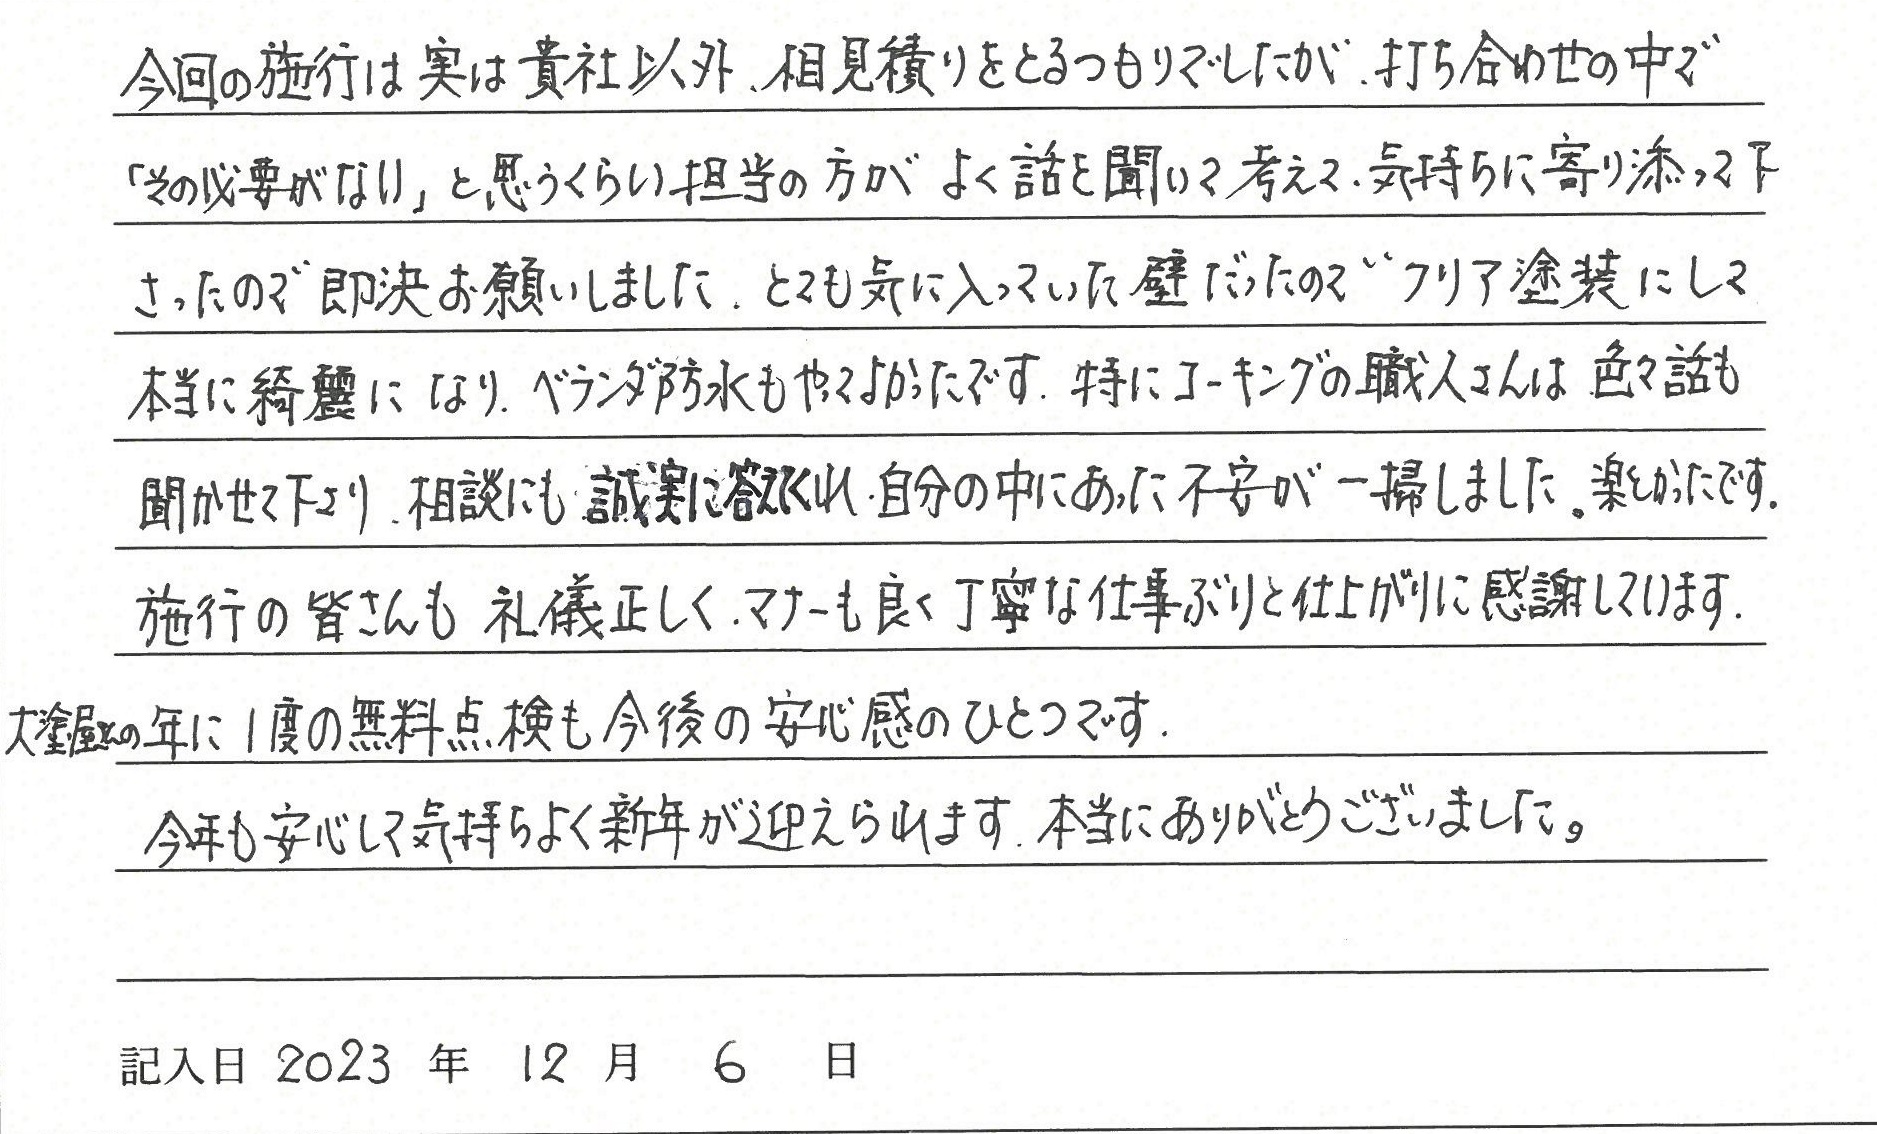 今回の施行は実は貴社以外、相見積りをとるつもりでしたが、打ち合わせの中で
「その必要がない」と思うくらい担当の方がよく話を聞いて考えて、気持ちに寄り添って下
さったので即決お願いしました。とても気に入っていた壁だったのでクリア塗装にして
本当に綺麗になり、ベランダ防水もやってよかったです。特にコーキングの職人さんは色々話も
聞かせて下さり、相談にも誠実に答えてくれ、自分の中にあった不安が一掃しました。楽しかったです。
施行の皆さんも礼儀正しく、マナーも良く丁寧な仕事ぶりと仕上がりに感謝しています。
大塗屋さんの年に1度の無料点検も今後の安心感のひとつです。
今年も安心して気持ちよく新年が迎えられます。本当にありがとうございました。
記入日 2023 年 12 月 6 日